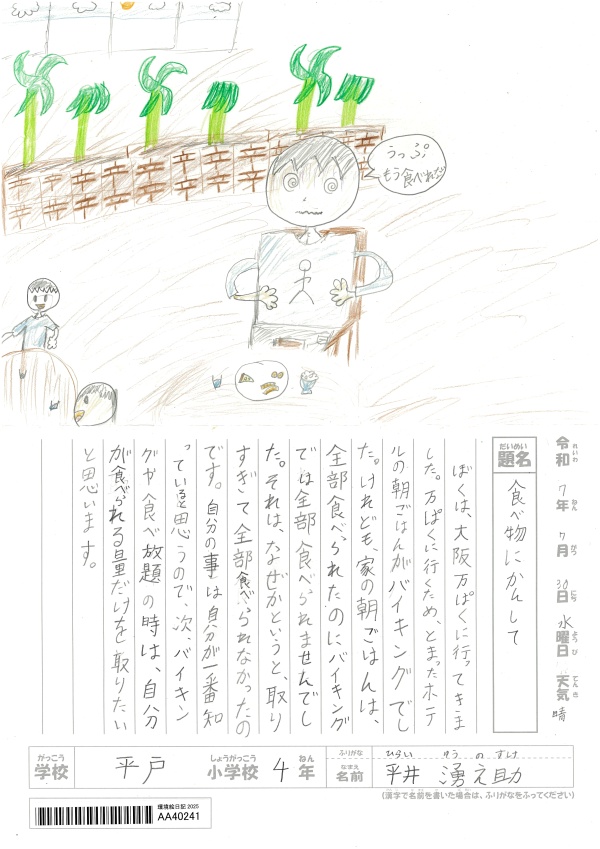 うっぷ
もう食べれない
令和7年7月30日水曜日天気晴
れいわ ねん がつ にち ようび てんき
題名 食べ物にかんして
だいめい
ぼくは、大阪万ぱくに行ってきま
した。万ぱくに行くため、とまったホテ
ルの朝ごはんがバイキングでし
た。けれども、家の朝ごはんは、
全部食べられたのにバイキング
では全部食べられませんでし
た。それは、なぜかというと、取り
すぎて全部食べられなかったの
です。自分の事は自分が一番知
っていると思うので、次、バイキン
グや食べ放題の時は、自分
が食べられる量だけを取りたい
と思います。
がっこう しょうがっこう ねん
学校 平戸 小学校 4年
ふりがな ひらい ゆうのすけ
なまえ
名前 平井 湧之助
(漢字で名前を書いた場合は、ふりがなをふってください)
環境絵日記 2025
AA40241